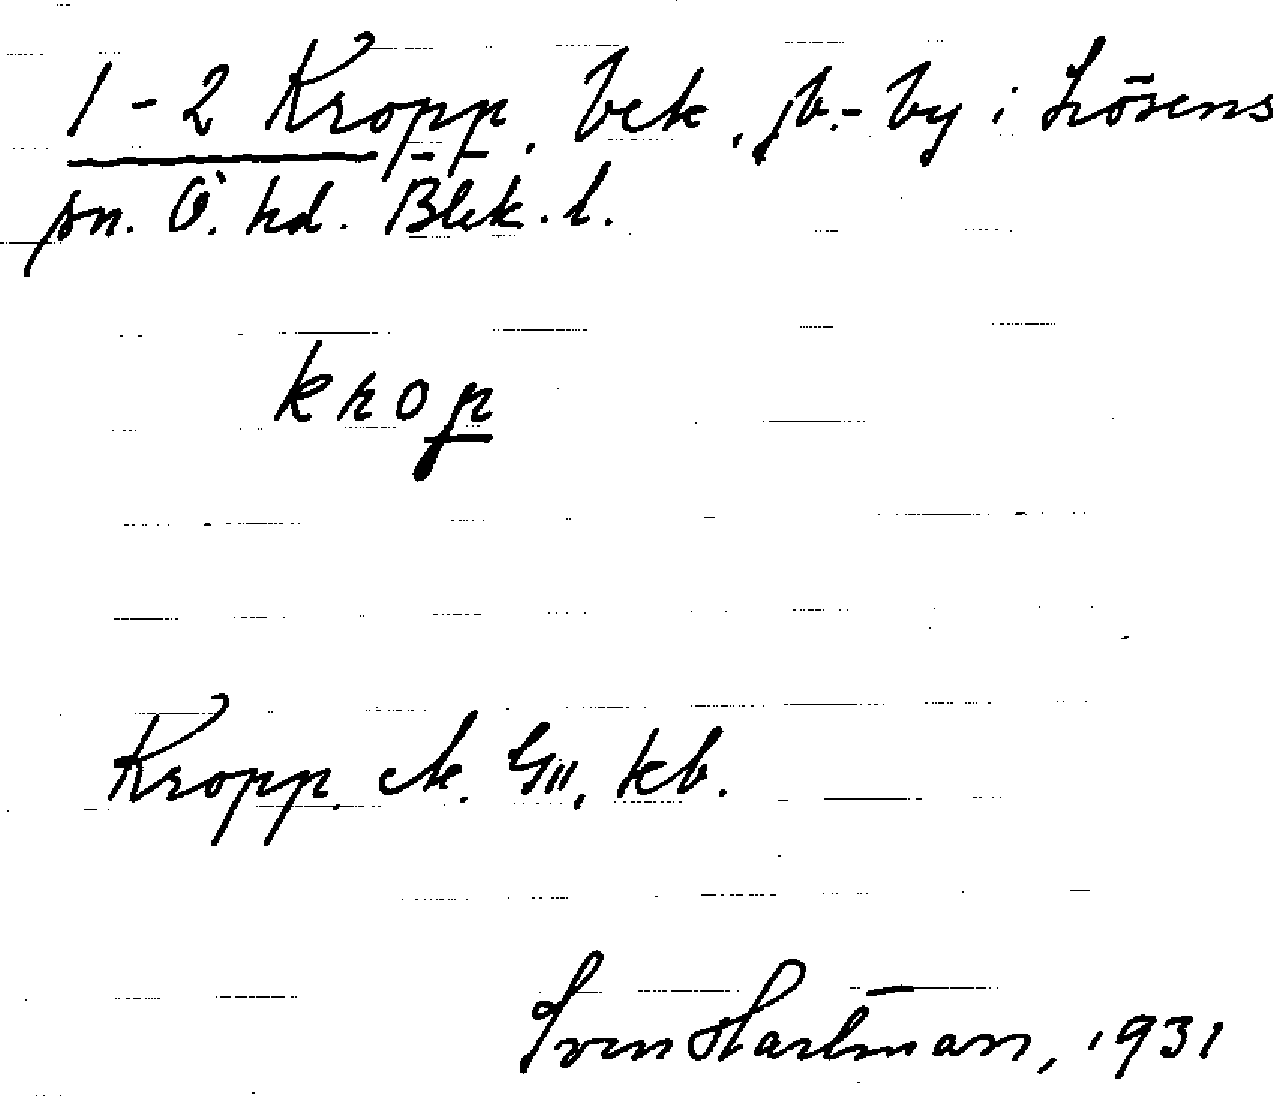 1-2 Kropp. bek. jb.-by i Lösens
sn. Ö. hd. Blek. l.
krop
Kropp. ek. GII, kb.
Sven Hartman, 1931